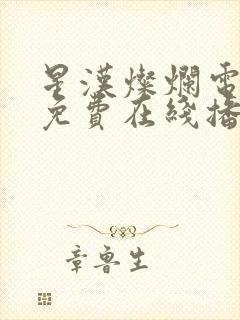 星漢燦爛電
免費在綫播
章魯生